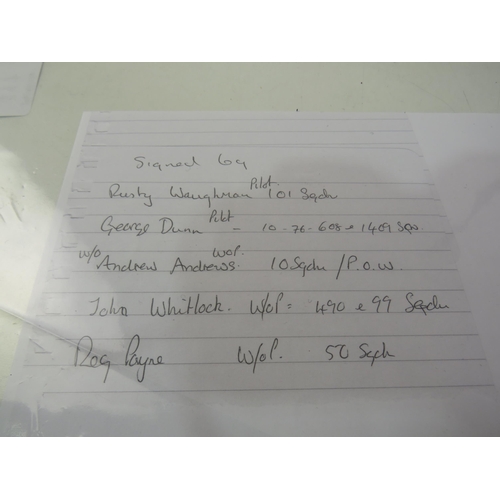 Signed by
Rusty Waughman Pilot 101 Sqdn
George Dunn Pilot - 10-76-608 & 1409 Sqn
W/O Andrew Andrews. W/OP. 10 Sqdn / P.O.W.
John Whitlock. W/OP = 490 & 99 Sqdn
Reg Payne W/OP. 50 Sqdn